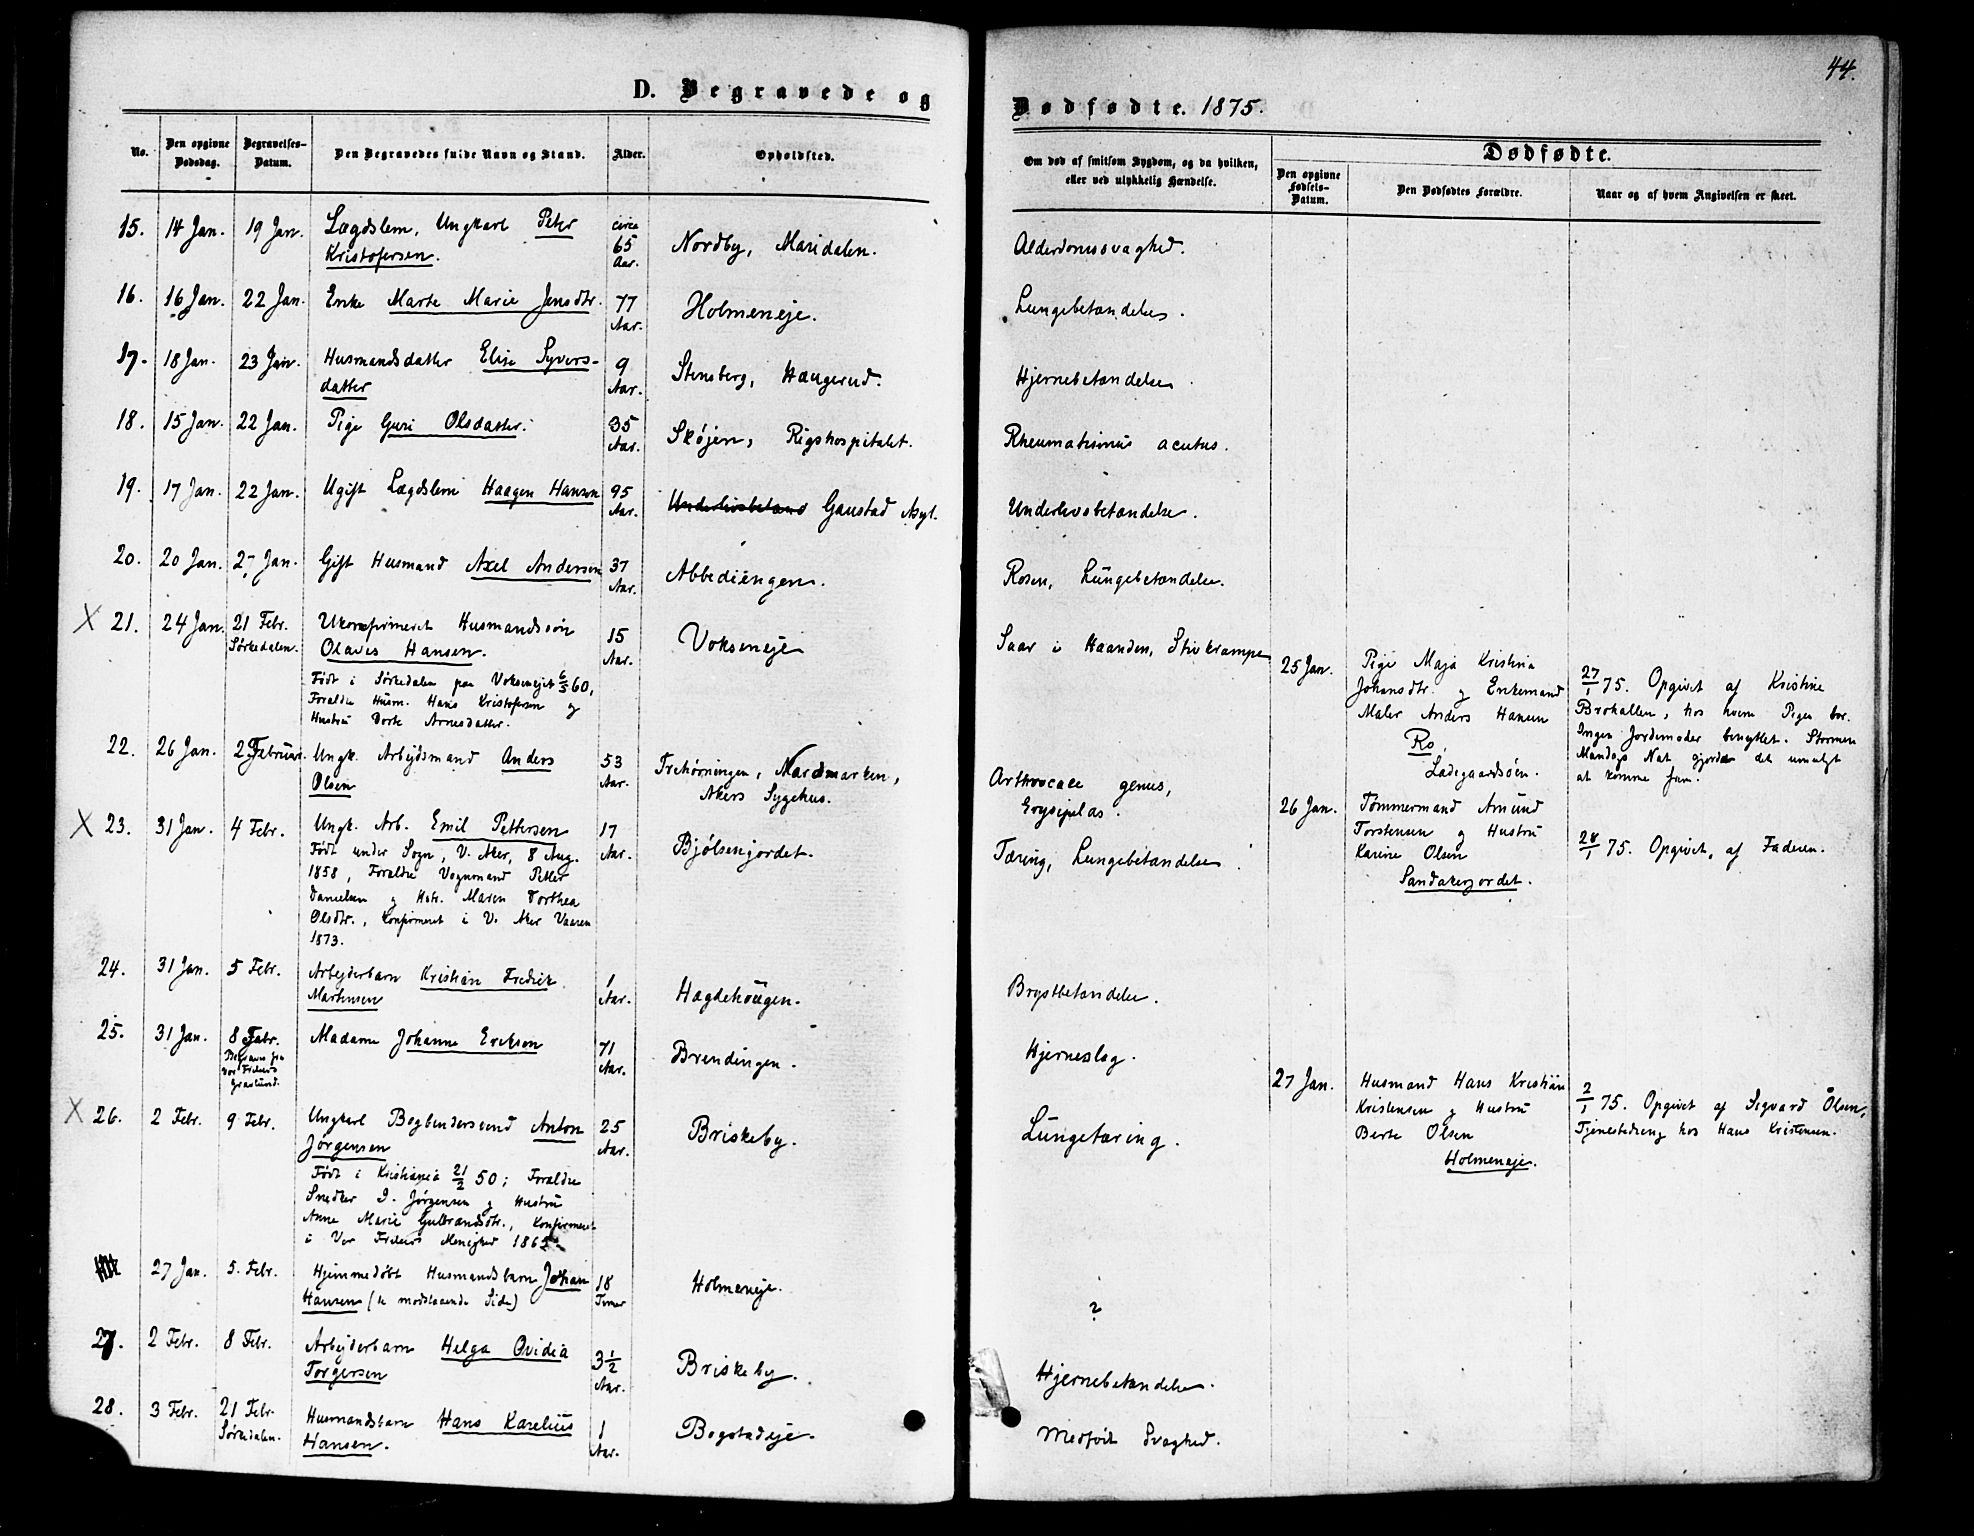 44.
D. Begravede og
Dødfødte. 1875.
No.
Den opgivne Dødsdag.
Begravelses-Datum.
Den Begravedes fulde Navn og Stand.
Alder.
Opholdssted.
Om død af smitsom Sygdom, og da hvilken,
eller ved ulykkelig Hændelse.
Dødfødte.
Den opgivne Fødsels-Datum.
Den Dødfødtes Forældre.
Naar og af hvem Angivelsen er skeet.
15. 14 Jan. 19 Jan. Lægdslem, Ungkarl Peter
Kristofersen.
circa 65 Aar.
Nordby, Maridalen.
Alderdomssvaghed.
16. 16 Jan. 22 Jan. Enke Marte Marie Jensdtr.
77 Aar.
Holmeneje.
Lungebetændelse.
17. 18 Jan. 23 Jan. Husmandsdatter Elise Syvers-
datter
9 Aar.
Stensberg, Haugerud.
Hjernebetændelse.
18. 15 Jan. 22 Jan. Pige Guri Olsdatter.
35 Aar.
Skøjen, Rigshospitalet.
Rheumatismus acutus.
19. 17 Jan. 22 Jan. Ugift Lægdslem Haagen Hansen
95 Aar.
Underlivsbetænd Gaustad Asyl.
Underlivsbetændelse.
20. 20 Jan. 27 Jan. Gift Husmand Axel Andersen
37 Aar.
Abbediengen.
Rosen, Lungebetændelse.
X 21. 24 Jan. 21 Febr.
Sørkedalen.
Ukonfirmeret Husmandssøn
Olaves Hansen.
Født i Sørkedalen paa Voksenejet 6/5 60,
Foraldre Husm. Hans Kristofersen og
Hustru Dorte Arnesdatter.
15 Aar.
Vokseneje
Saar i Haanden, Stivkrampe
25 Jan.
Pige Maja Kristina
Johansdtr. og Enkemand
Maler Anders Hansen
Ro,
Ladegaardsøen.
27/1 75. Opgivet af Kristine
Brohallen, hos hvem Pigen bor.
Ingen Jordemoder benyttet. Stormen
Mandags Nat gjorde det umuligt
at komme frem.
22. 26 Jan. 2 Februar. Ungk. Arbejdsmand Anders
Olsen
53 Aar.
Trehørningen, Nordmarken,
Akers Sygehus.
Arthrocace genus,
Erysipelas.
26 Jan.
Tømmermand Amund
Torstensen og Hustru
Karine Olsen
Sandakerjordet.
28/1 75. Opgivet, af Faderen.
X 23. 31 Jan. 4 Febr. Ungk. Arb. Emil Pettersen
Født under Sogn, V. Aker, 8 Aug.
1858, Foraldre Vognmand Petter
Danielsen og Hstr. Maren Dorthea
Olsdtr., Konfirmeret i V. Aker Vaaren
1873.
17 Aar.
Bjølsenjordet.
Tæring, Lungebetændelse
24. 31 Jan. 5 Febr. Arbejderbarn Kristian Fredrik
Martinsen
1 Aar.
Hægdehougen.
Brystbetændelse.
25. 31 Jan. 8 Febr.
Begravet fra
Vor Frelsers
Gravlund.
Madame Johanne Erikson
71 Aar.
Brendingen.
Hjerneslag.
27 Jan.
Husmand Hans Kristian
Kristensen og Hustru
Berte Olsen
Holmeneje.
2/1 75. Opgivet af Sigvard Olsen,
Tjenestedreng hos Hans Kristensen.
X 26. 2 Febr. 9 Febr. Ungkarl Bogbindersvend Anton
Jørgensen
Født i Kristiania 21/2 50; Foraldre
Snedker I. Jørgensen og Hustru
Anne Marie Gulbrandsdtr., Konfirmeret
i Vor Frelsers Menighed 1865.
25 Aar.
Briskeby.
Lungetæring.
27 Jan. 5. Febr. Hjemmedøbt Husmandsbarn Johan
Hansen (se modstaaende Side)
18 Timer
Holmeneje.
?
27. 2 Febr. 8 Febr. Arbejderbarn Helga Ovidia
Torgersen
3½ Aar.
Briskeby.
Hjernebetændelse.
28. 3 Febr. 21 Febr.
Sørkedalen.
Husmandsbarn Hans Karelius
Hansen.
1 Aar.
Bogstadeje.
Medfødt Svaghed.